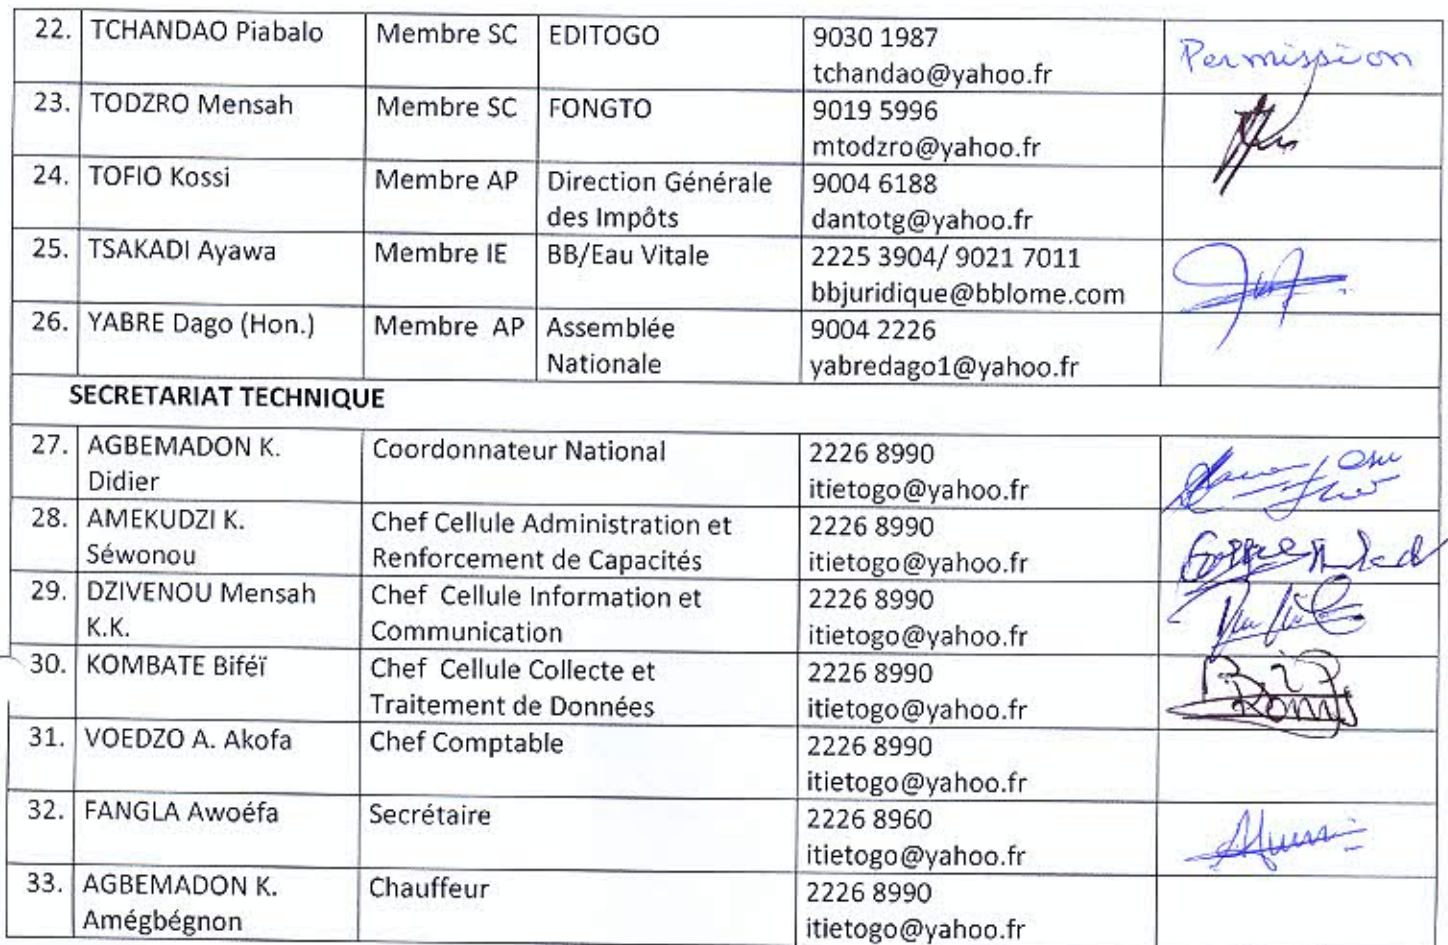 22. TCHANDAO Piabalo Membre SC EDITOGO 9030 1987 Permission
tchandao@yahoo.fr
23. TODZRO Mensah Membre SC FONGTO 9019 5996
mtodzro@yahoo.fr
24. TOFIO Kossi Membre AP Direction Générale 9004 6188
des Impôts dantotg@yahoo.fr
25. TSAKADI Ayawa Membre IE BB/Eau Vitale 2225 3904/ 9021 7011
bbjuridique@bblome.com
26. YABRE Dago (Hon.) Membre AP Assemblée 9004 2226
Nationale yabredago1@yahoo.fr
SECRETARIAT TECHNIQUE
27. AGBEMADON K. Coordonnateur National 2226 8990
Didier itietogo@yahoo.fr
28. AMEKUDZI K. Chef Cellule Administration et 2226 8990
Séwonou Renforcement de Capacités itietogo@yahoo.fr
29. DZIVENOU Mensah Chef Cellule Information et 2226 8990
K.K. Communication itietogo@yahoo.fr
30. KOMBATE Biféï Chef Cellule Collecte et 2226 8990
Traitement de Données itietogo@yahoo.fr
31. VOEDZO A. Akofa Chef Comptable 2226 8990
itietogo@yahoo.fr
32. FANGLA Awoéfa Secrétaire 2226 8960
itietogo@yahoo.fr
33. AGBEMADON K. Chauffeur 2226 8990
Amégbégnon itietogo@yahoo.fr